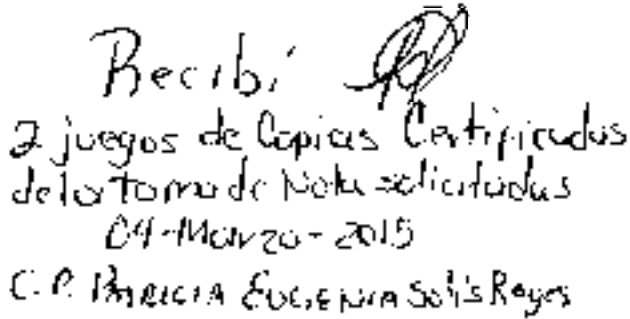 Recibí
2 juegos de Copias Certificadas
de la toma de Nota solicitadas
04-Marzo-2015
C.P. PATRICIA EUGENIA Solis Reyes